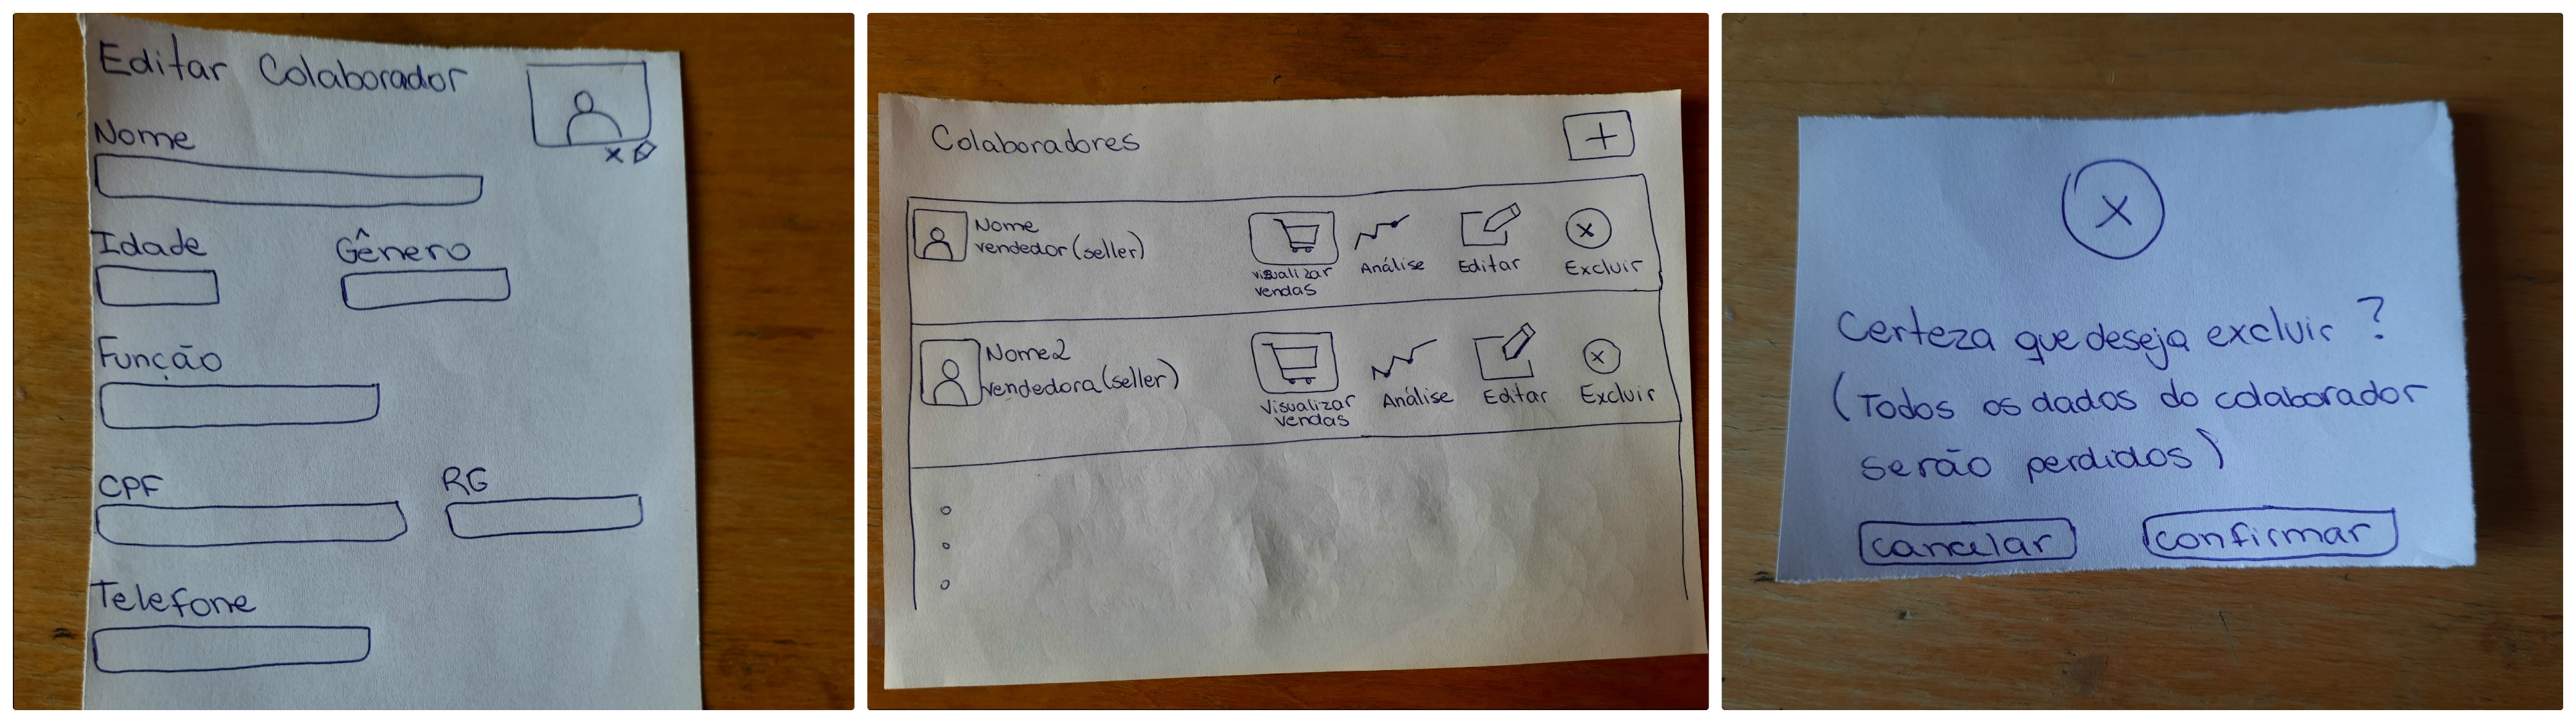 Editar Colaborador
Nome
Idade Gênero
Função
CPF RG
Telefone
Colaboradores
+
Nome
vendedor (seller)
visualizar
vendas
Análise
Editar
Excluir
Nome2
vendedora (seller)
Visualizar
vendas
Análise
Editar
Excluir
Certeza que deseja excluir ?
(Todos os dados do colaborador
serão perdidos)
cancelar confirmar